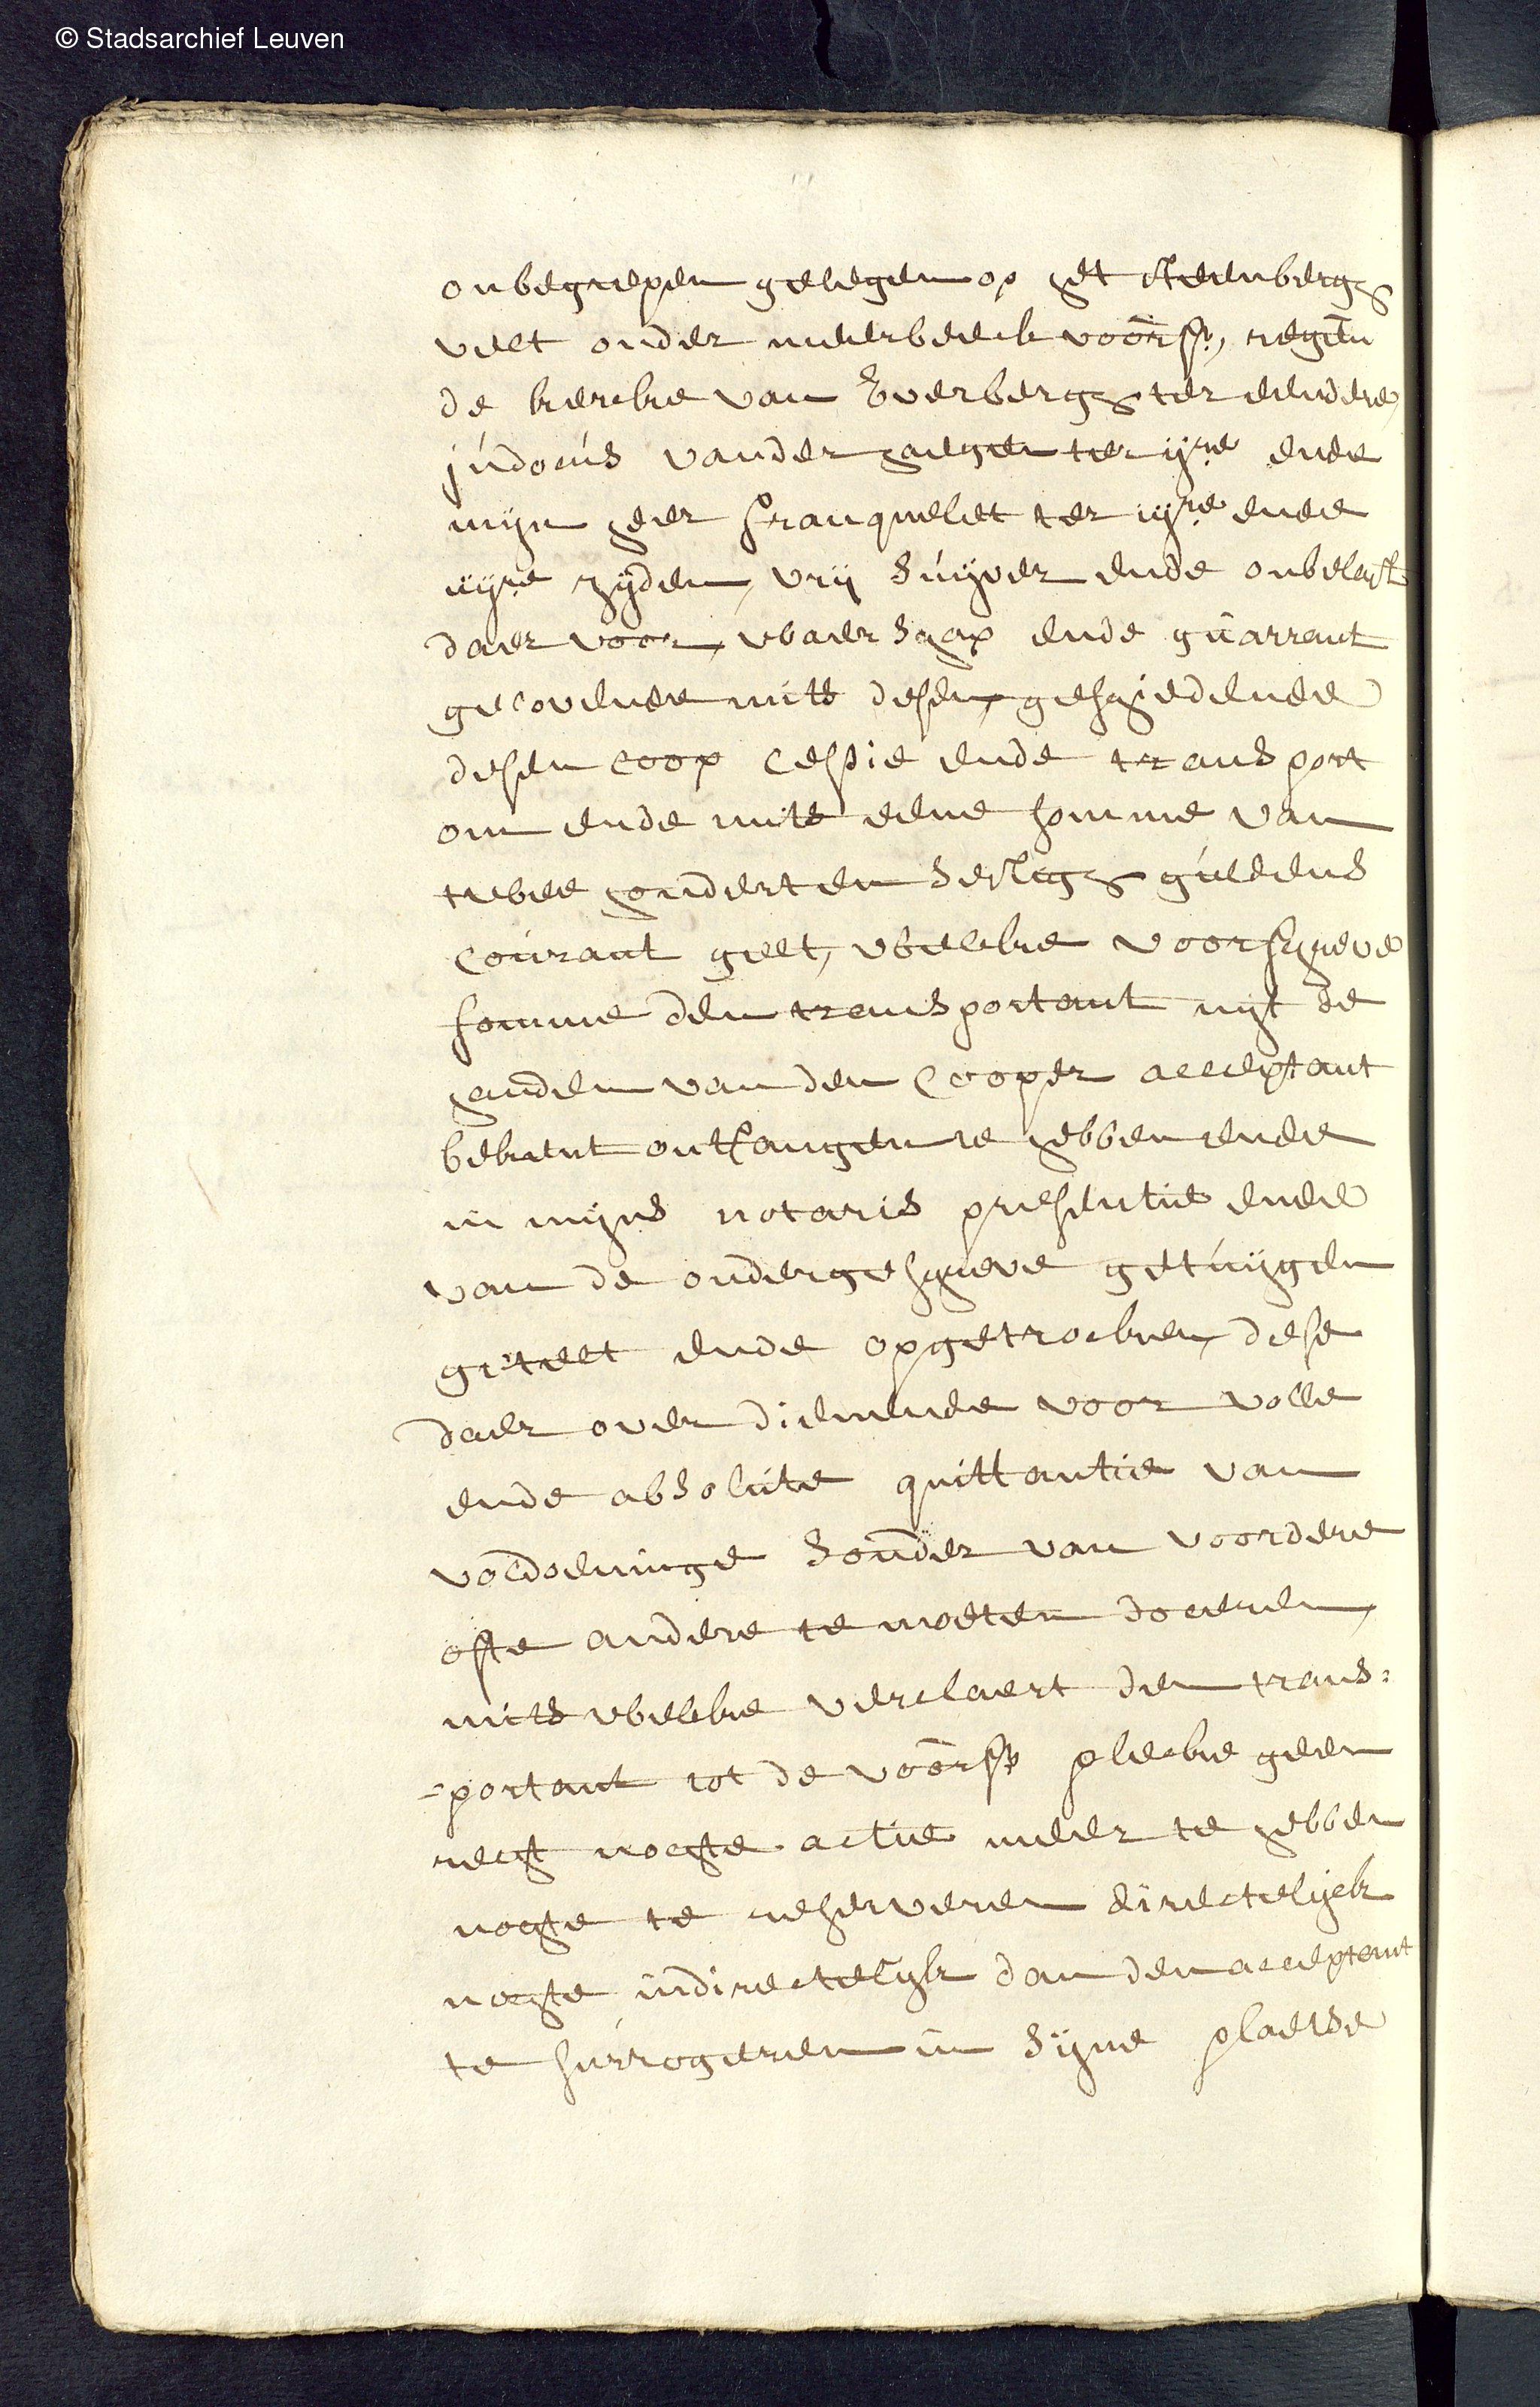 © Stadsarchief Leuven
onbegrepen gelegen op het steenbergh
velt onder meerbeeck voors., regen
de kercke van Everbergh ter eendere,
judocús vander haegen ter ijre ende
mijn heer franquelet ter ijre ende
ijre zijden, vrij súijver ende onbelast
daer voor, waerschap ende guarrant
gelovende mits desen, geschiedende
desen coop cessie ende transport
om ende mits eene somme van
twee hondert en sestigh gúldens
coúrant gelt, welcke voorschreve
somme den transportant uijt de
handen van den cooper acceptant
bekent ontfangen te hebben ende
in mijns notaris presentie ende
van de ondergeschreve getúijgen
getelt ende opgetrocken, dese
daer over dienende voor volle
ende absolúte quittantie van
voldoeninge sonder van voordere
ofte andere te moeten doceren,
mits welcke verclaert den trans=
=portant tot de voors. plecke geen
recht nochte actie meer te hebben
nochte te reserveren directelijck
nochte indirectelijck dan den acceptant
te súrrogeren in sijne plaetse